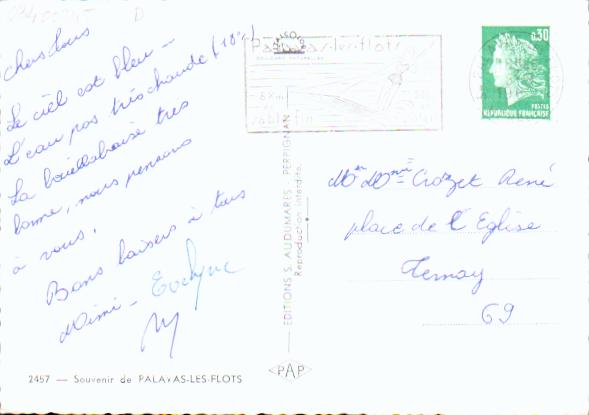 Chers tous
Le ciel est bleu -
L'eau pas très chaude (18°)
La bouillabaisse très
bonne, nous pensons
à vous.
Bons baisers à tous
Mimi - Evelyne
2457 — Souvenir de PALAVAS-LES-FLOTS
EDITIONS S. AUDUMARES. PERPIGNAN
Reproduction interdite.
PAP
Palavas-les-flots
sable fin
0,30
POSTES
REPUBLIQUE FRANÇAISE
Mr et Mme Crozet René
place de l'Eglise
Ternay
69